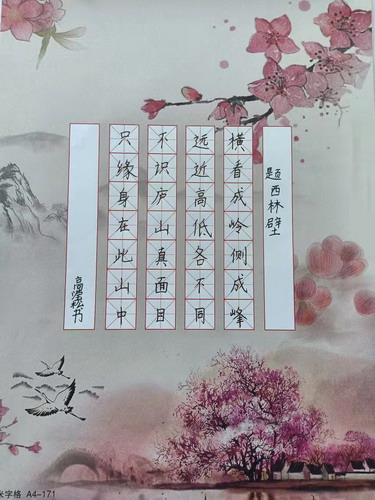 题西林壁
横看成岭侧成峰
远近高低各不同
不识庐山真面目
只缘身在此山中
书
米字格 A4-171